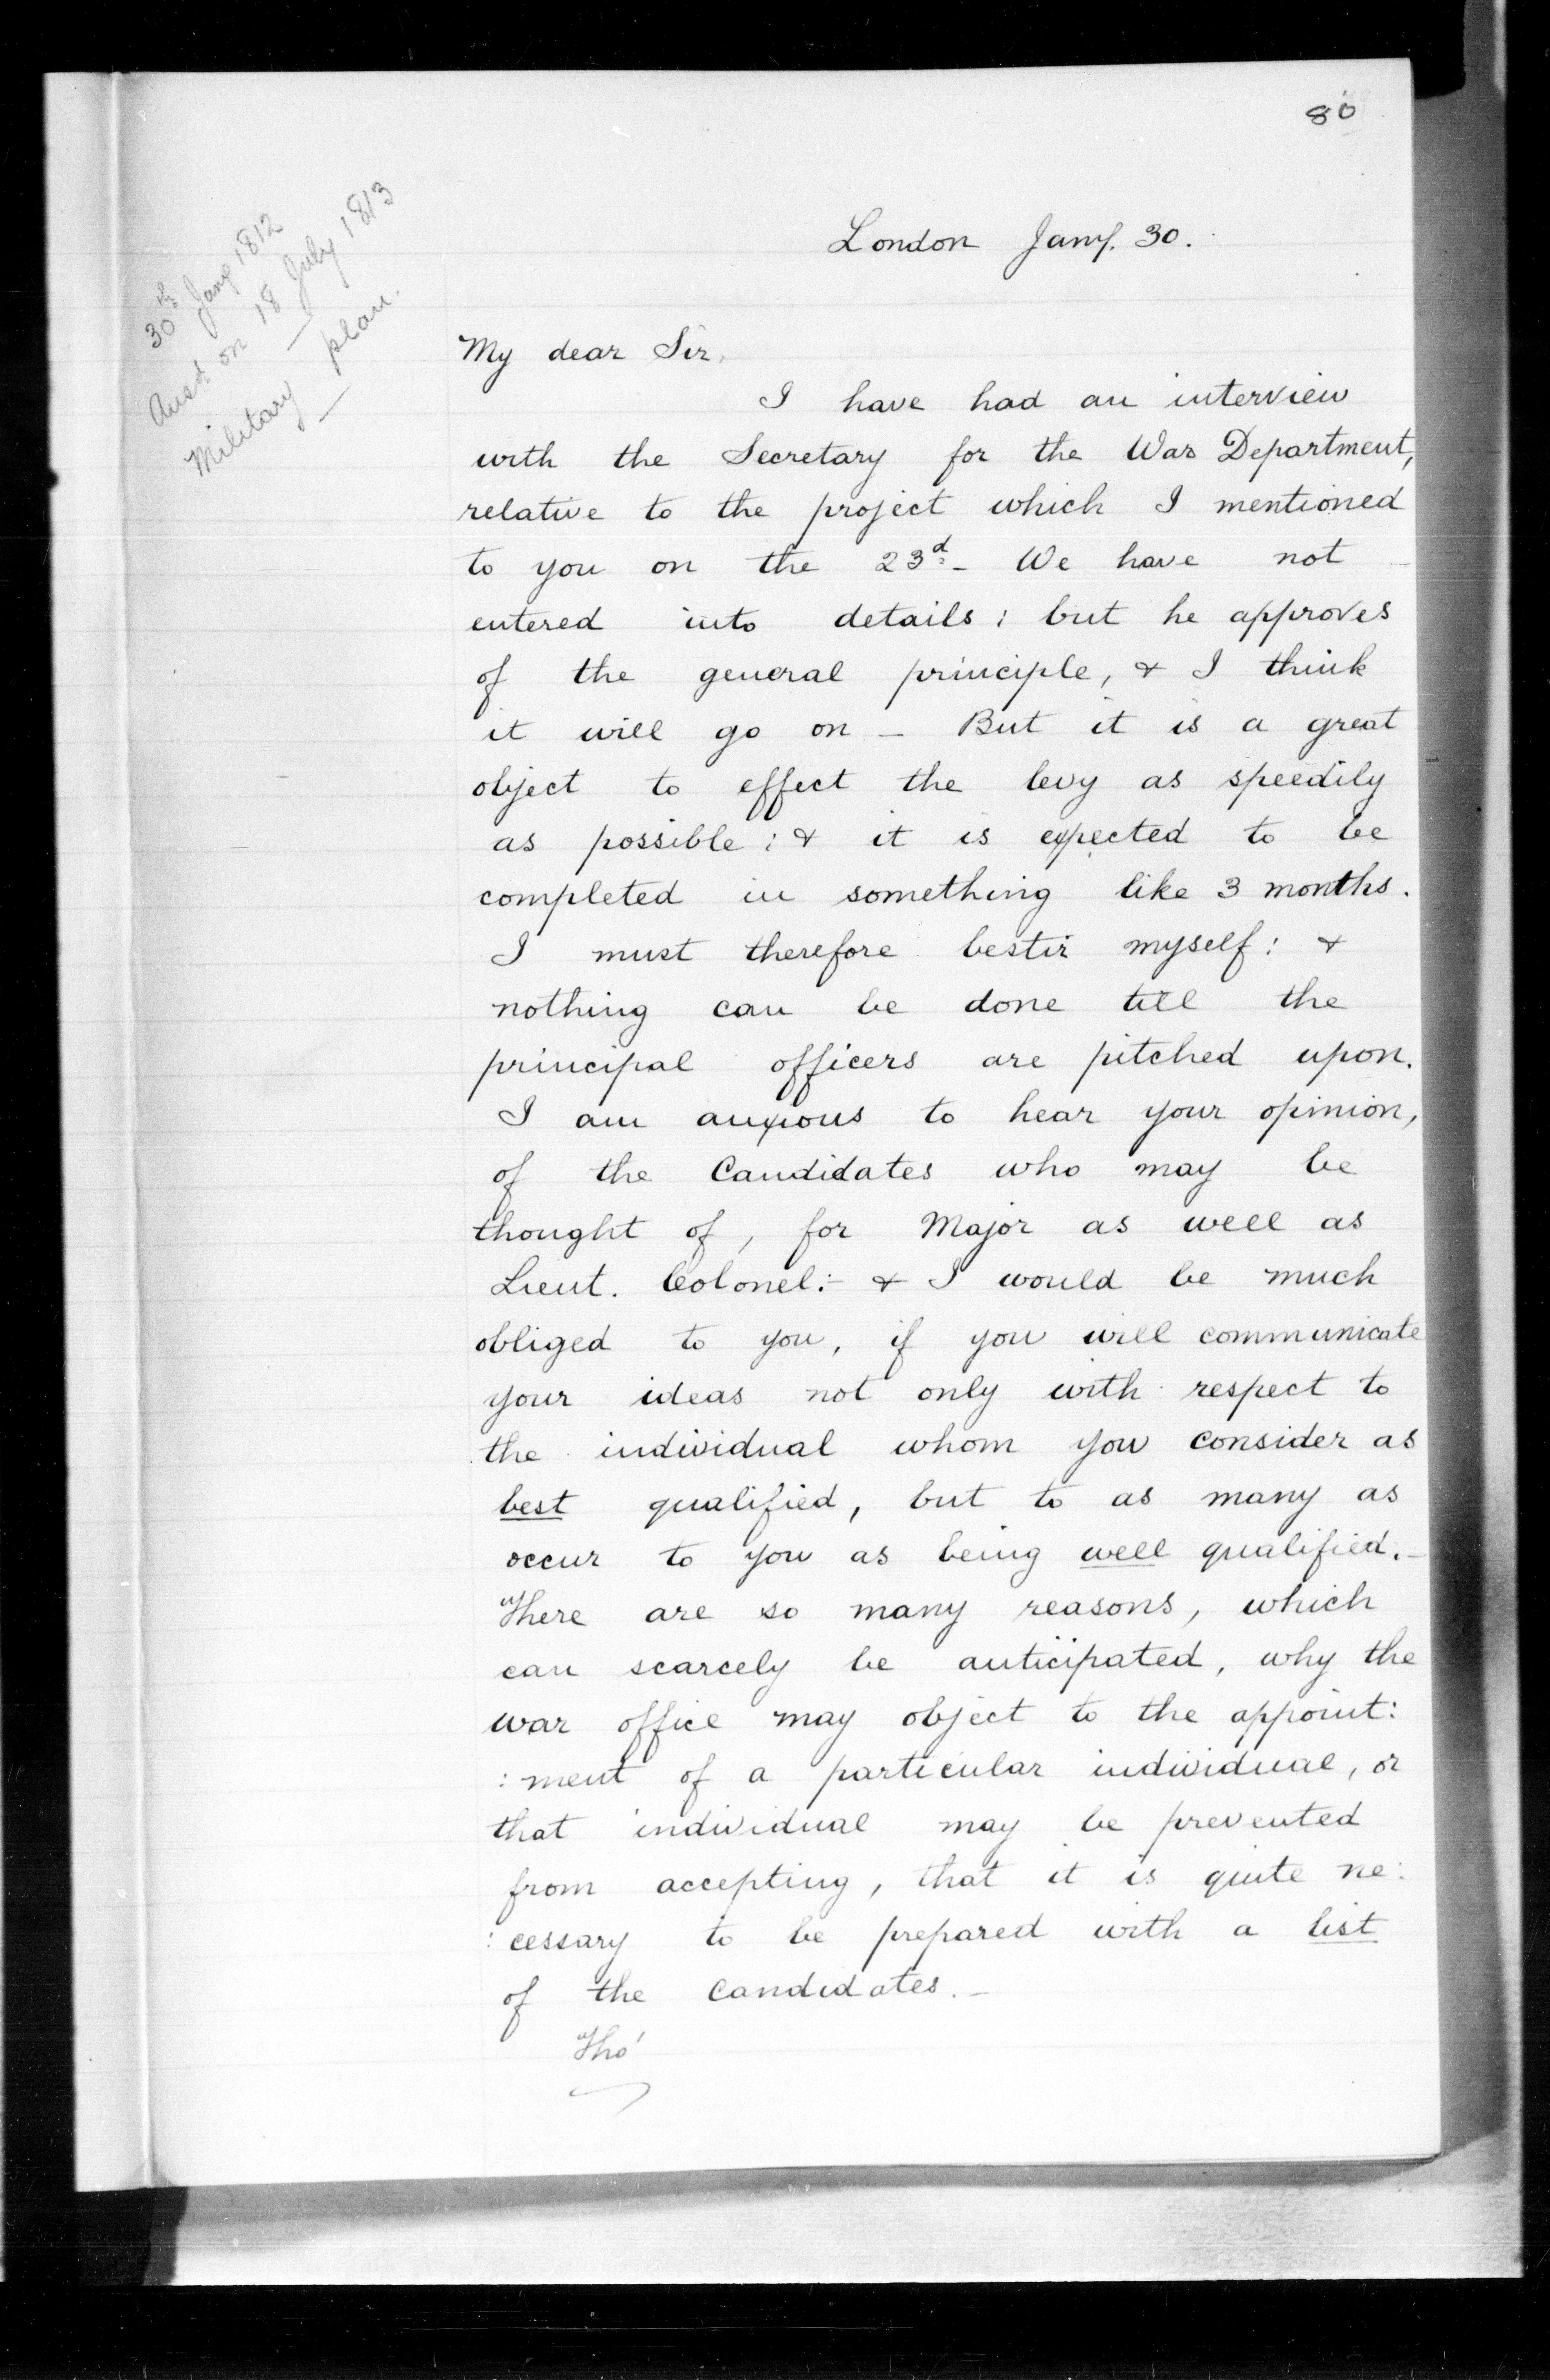 80
30th Jany 1812
Ansd on 18 July 1813
Military plan.
London Jany. 30.
My dear Sir,
I have had an interview
with the Secretary for the War Department,
relative to the project which I mentioned
to you on the 23d - We have not
entered into details; but he approves
of the general principle, & I think
it will go on - But it is a great
object to effect the levy as speedily
as possible; & it is expected to be
completed in something like 3 months.
I must therefore bestir myself: &
nothing can be done till the
principal officers are pitched upon.
I am anxious to hear your opinion,
of the Candidates who may be
thought of, for Major as well as
Lieut. Colonel:- & I would be much
obliged to you, if you will communicate
your ideas not only with respect to
the individual whom you consider as
best qualified, but to as many as
occur to you as being well qualified.-
There are so many reasons, which
can scarcely be anticipated, why the
war office may object to the appoint:
:ment of a particular individual, or
that individual may be prevented
from accepting, that it is quite ne:
:cessary to be prepared with a list
of the Candidates.-
Tho'